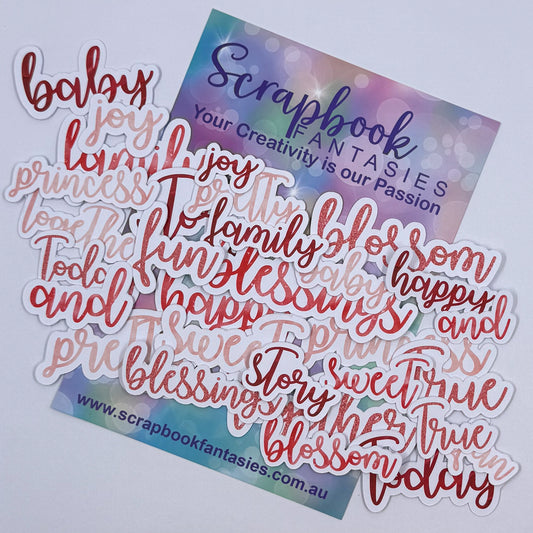 baby
Scrapbook
FANTASIES
Your Creativity is our Passion
joy
family
joy
princess
pretty
together
To
family
blossom
Today
fun
blessings
baby
happy
and
happy
and
pretty
sweet
princess
blessings
story
sweet
True
together
True
blossom
fun
today
www.scrapbookfantasies.com.au